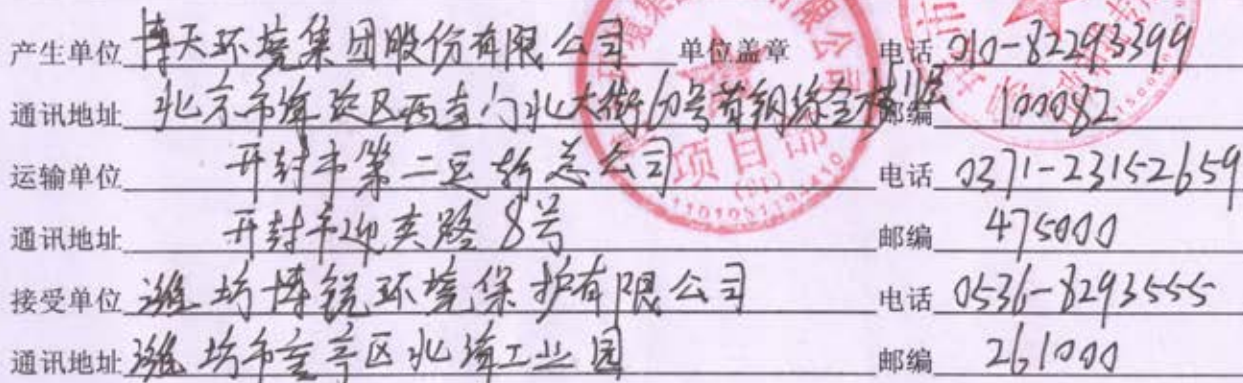 产生单位 博天环境集团股份有限公司 单位盖章 电话 010-82293399
通讯地址 北京市海淀区西直门北大街60号首钢综合楼11层 邮编 100082
运输单位 开封市第二运输总公司 电话 0371-23152659
通讯地址 开封市迎宾路8号 邮编 475000
接受单位 潍坊博锐环境保护有限公司 电话 0536-8293555
通讯地址 潍坊市奎文区北海工业园 邮编 261000
项目部
(01)